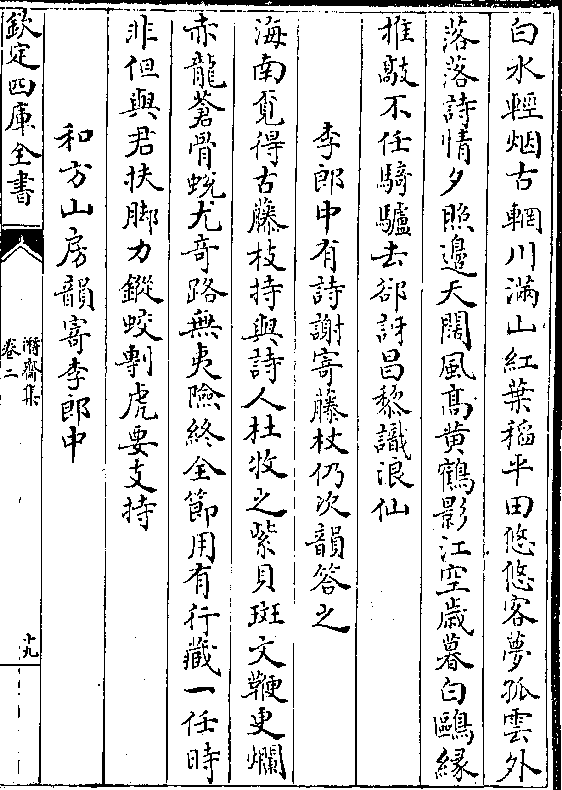 白水輕烟古輞川滿山紅葉稻平田悠悠客夢孤雲外
落落詩情夕照邊天闊風髙黄鶴影江空歳暮白鷗縁
推敲不任騎驢去卻訝昌黎識浪仙
李郎中有詩謝寄藤杖仍次韻答之
海南覓得古藤枝持與詩人杜牧之紫貝斑文鞭更爛
赤龍蒼骨蛻尤竒路無夷險終全節用有行藏一任時
非但與君扶脚力鏦蛟剸虎要支持
和方山房韻寄李郎中
欽定四庫全書
潛齋集
卷二
十九